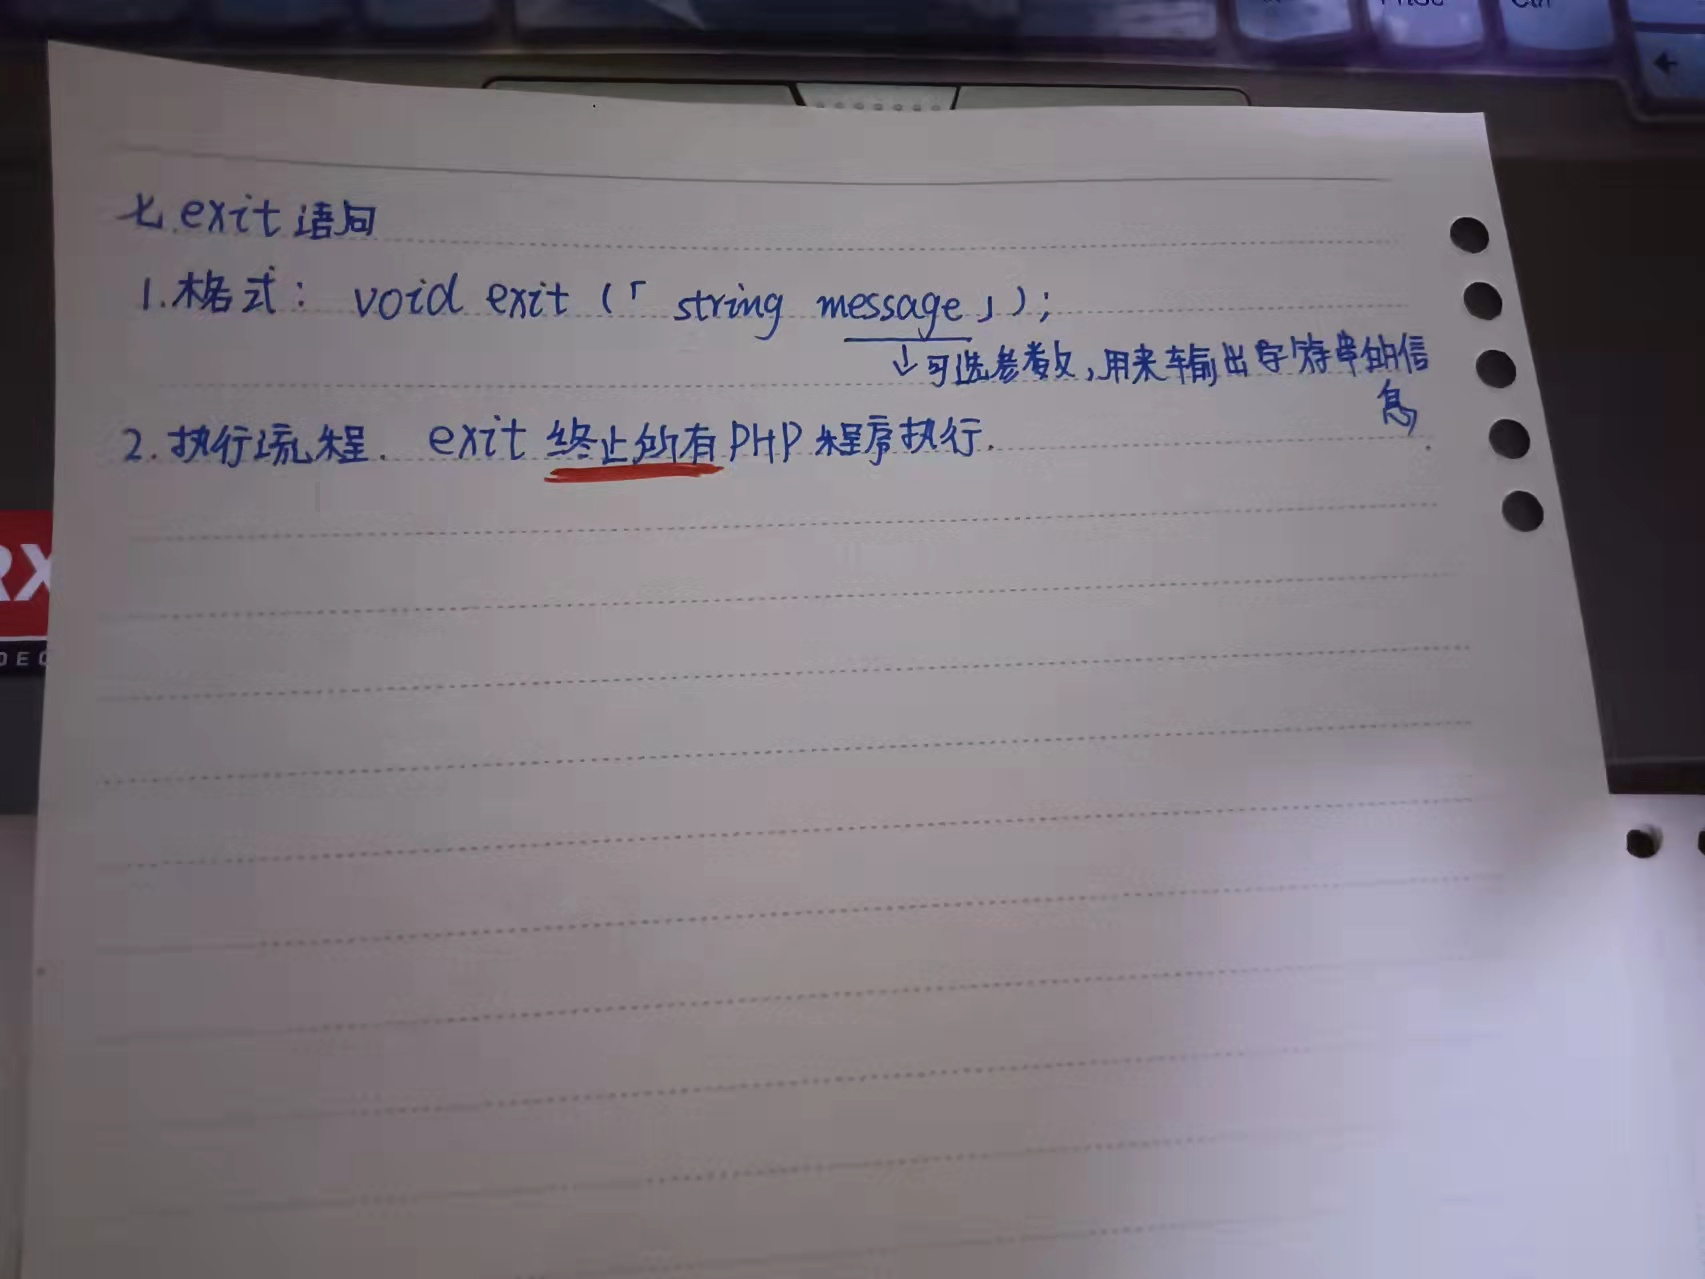 PrtSc
Ctrl
←
七.exit语句
1.格式: void exit (「 string message」);
↓可选参数,用来输出字符串的信
息
2.执行流程. exit 终止所有PHP程序执行.
RX
DEO